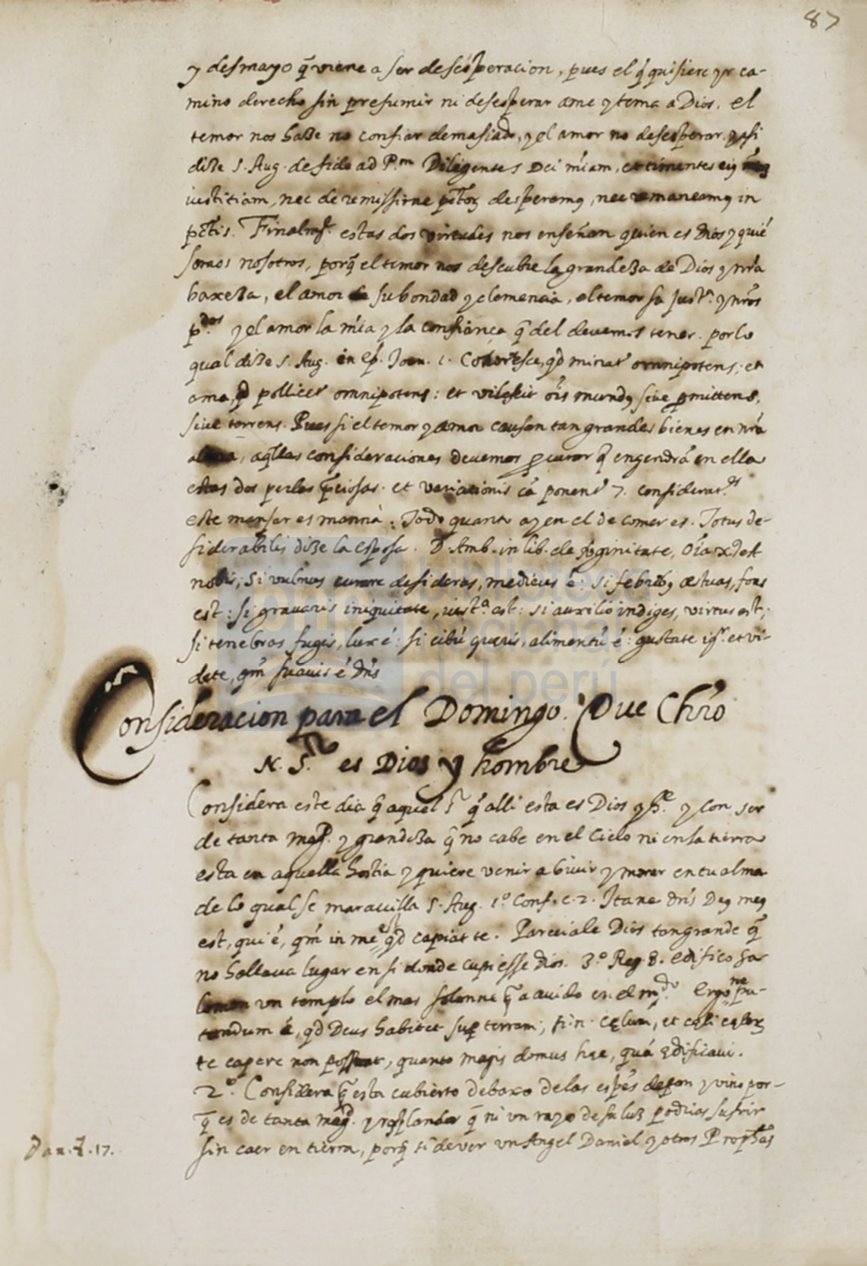 87
y desmayo q̃ viene a ser desesperacion, pues el q̃ quisiere yr ca-
mino derecho sin presumir ni desesperar ame y tema a Dios. el
temor nos haze no confiar demasiado, y el amor no desesperar. y asi
dize S. Aug. de fide ad P.m Diligentes Dei mĩam, et timentes eiꝰ
iustitiam, nec de remissione pctõrꝫ desperemꝰ, nec remaneamꝰ in
pctĩs. Finalmẽ. estas dos virtudes nos enseñan quien es Dios y quiẽ
somos nosotros, porq̃ el temor nos descubre la grandeza de Dios y nrã
baxeza, el amor su bondad y clemencia, el temor su just.ª y nrõs
p.dos y el amor la mĩa y la confiança q̃ del devemos tener. por lo
qual dize S. Aug. in Ep. Joan. 1. qd minat omnipotens; et
ama, qd pollicet omnipotens: et vilescit oĩs mundꝰ, sive p̱mittens,
sive terrens. Pues si el temor y amor causan tan grandes bienes en nrã
alma, aq̃llas consideraciones devemos ꝓcurar q̃ engendrẽ en ella
estas dos perlas p̃ciosas. et variationis cã ponent 7. considerat.es
este manjar es manna. Todo quanto ay en el de comer es. Totus de-
siderabilis dize la esposa. D. Amb. in lib. de virginitate, Oĩa xp̃s est
nobis, si vulnus curare desideras, medicus ẽ: si febribꝰ æstuas, fons
est: si gravaris iniquitate, iust.ª est: si auxilio indiges, virtus est;
si tenebras fugis, lux ẽ: si cibũ quæris, alimentũ ẽ: gustate igr. et vi-
dete, qm̃ suavis ẽ dnŝ
Consideracion para el Domingo. Que Chrõ
N. S.r es Dios y hombre
Considera este dia q̃ aquel S.r q̃ alli esta es Dios y hẽ. y con ser
de tanta mag.d y grandeza q̃ no cabe en el cielo ni en la tierra
esta en aquella hostia y quiere venir a bivir y morar en tu alma
de lo qual se maravilla S. Aug. 1.º Conf. c. 2. Itane dnŝ Deꝰ meꝰ
est, qui ẽ, qm̃ in me, qd capiat te. Pareciale Dios tan grande q̃
no hallava lugar en si donde cupiesse Dios. 3.º Reg. 8. edifico Sa-
lomon un templo el mas solenne q̃ a avido en el m.do Ergo ne pu-
tandum ẽ, qd Deus habitet sup̱ terram; si.n. cęlum, et cęli cęlorꝫ
te capere non possunt, quanto magis domus hæc, quã ædificavi.
2.º Considera q̃ esta cubierto debaxo de las espẽs de pan y vino por-
q̃ es de tanta mag.d y resplandor q̃ ni un rayo de su luz podrias sufrir
sin caer en tierra, porq̃ si de ver un Angel Daniel y otros Prophetas
Dan. 8. 17.